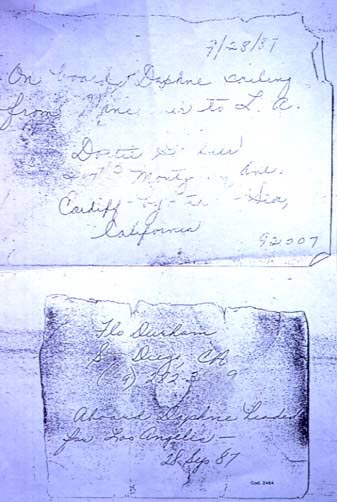 9/28/87
On board Daphne sailing
from to L. A.
Dottie
Ave.
Cardiff-by-the-Sea,
California
92007
Flo Durham
San Diego, CA
282-
Aboard Daphne headed
for Los Angeles —
28 Sep 87
Cod. 2464